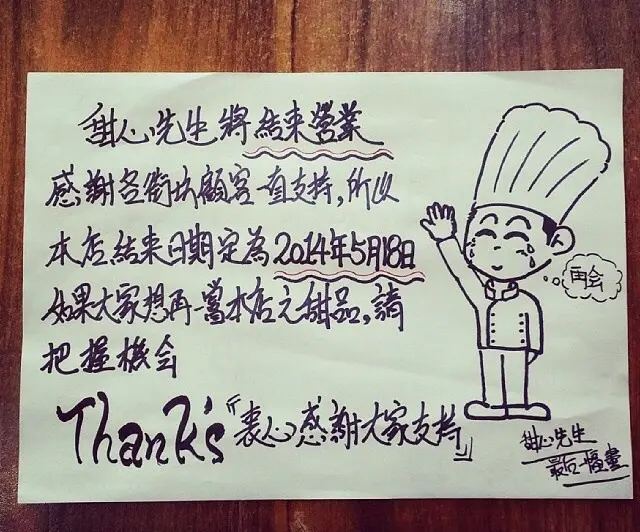 甜心先生將結束營業
感謝各街坊顧客一直支持,所以
本店結束日期定為2014年5月18日
如果大家想再一嘗本店之甜品,請
把握機会
Thank's『衷心感謝大家支持』
再会
甜心先生
最后一幅畫